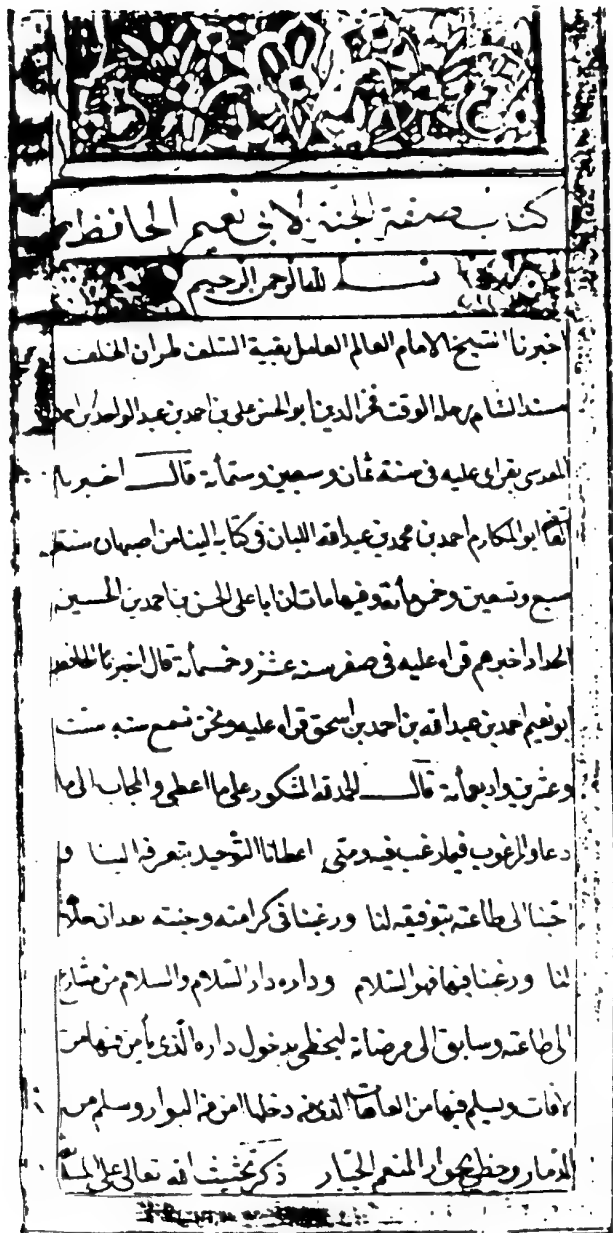 كتاب صفة الجنة لابى نعيم الحافظ
بسم الله الرحمن الرحيم
اخبرنا الشيخ الامام العالم العامل بقية السلف لمران الخلف
مسند الشام رحلة الوقت فخر الدين ابو الحسن على بن احمد بن عبد الواحد بن احمد
المقدسى بقراى عليه فى سنة ثمان وسبعين وستمأنة قال اخبرنا
ابو المكارم احمد بن محمد بن عبد الله اللبان فى كتابه الينا من اصبهان سنة
سبع وتسعين وخمسمأنة وفيها مات ان ابا على الحسن بن احمد بن الحسين
الحداد اخبرهم قراة عليه فى صفر سنة عشر وخمسمأنة قال اخبرنا الحافظ
ابو نعيم احمد بن عبد الله بن احمد بن اسحق قراة عليه ونحن نسمع سنة ست
وعشرين واربعمأنة قال الحمد لله المشكور على ما اعطى والمجاب الى ما
دعا والمرغوب فيما رغب فيه ومنى اعطانا التوحيد بتعرفه الينا و
اجبنا الى طاعته بتوفيقه لنا ورغبنا فى كرامته وجنته بعد ان
لنا ورغبنا فيها فهو السلام وداره دار السلام والسلام من
الى طاعته وسابق الى مرضاته ليحظى بدخول داره الذى يأمن فيها من
الافات ويسلم فيها من العاهات الذى من دخلها امن من البوار وسلم من
الدمار وحظى بجوار المنعم الجبار ذكر تحثيث الله تعالى على